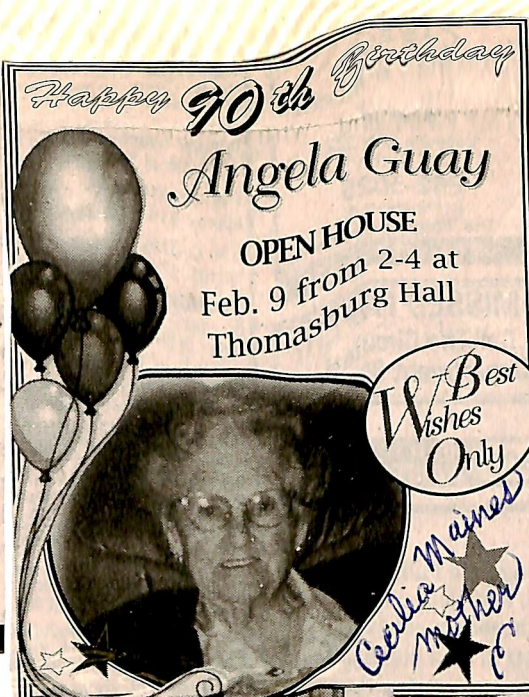 Happy 90th Birthday
Angela Guay
OPEN HOUSE
Feb. 9 from 2-4 at
Thomasburg Hall
Best
Wishes
Only
Cecilia Maines
mother